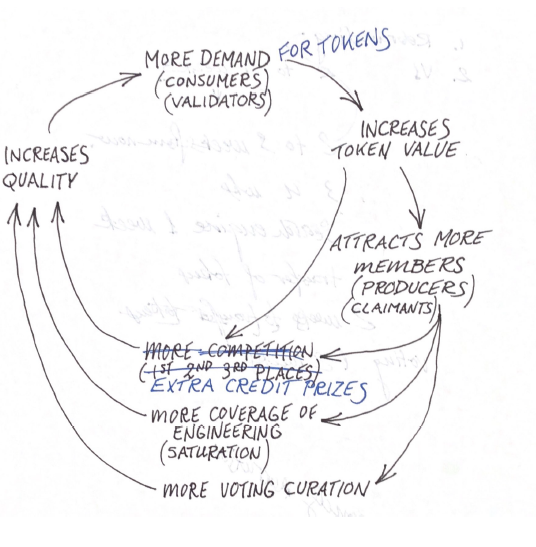 MORE DEMAND FOR TOKENS
(CONSUMERS)
(VALIDATORS)
INCREASES
TOKEN VALUE
ATTRACTS MORE
MEMBERS
(PRODUCERS)
(CLAIMANTS)
MORE COMPETITION
(1ST 2ND 3RD PLACES)
EXTRA CREDIT PRIZES
MORE COVERAGE OF
ENGINEERING
(SATURATION)
MORE VOTING CURATION
INCREASES
QUALITY